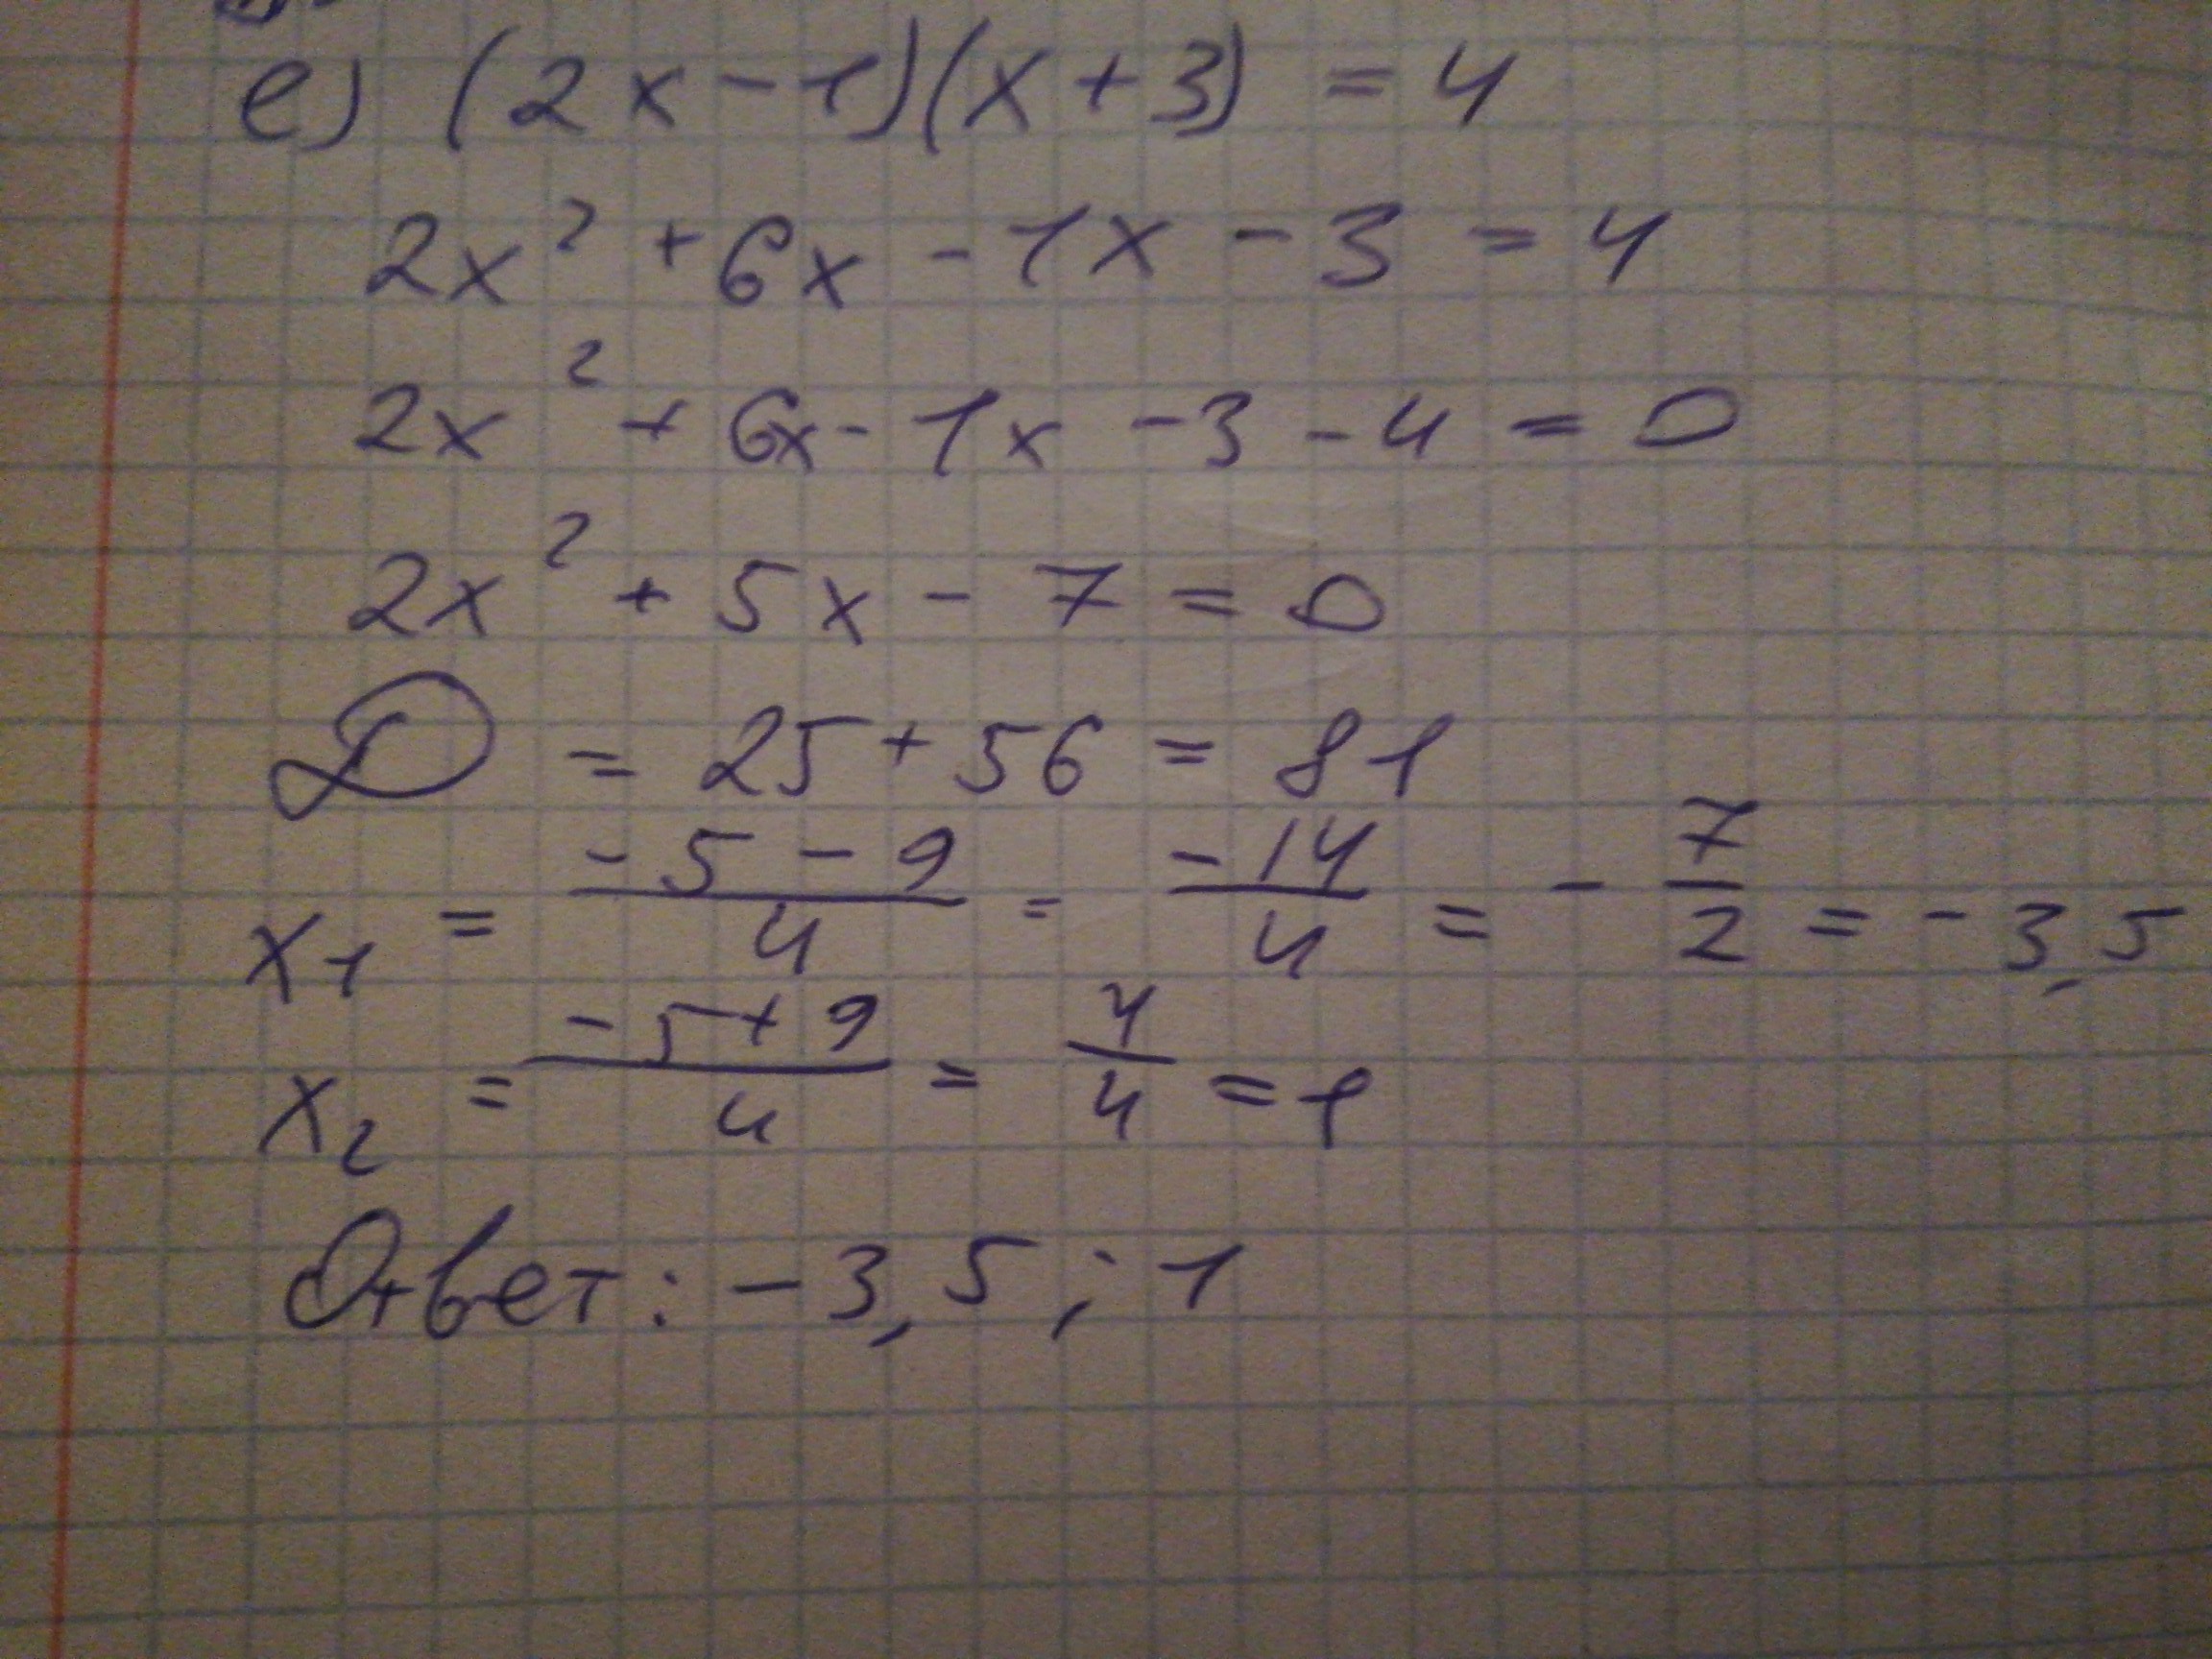 е) (2x-1)(x+3) = 4
2x² + 6x - 1x - 3 = 4
2x² + 6x - 1x - 3 - 4 = 0
2x² + 5x - 7 = 0
D = 25 + 56 = 81
x₁ = (-5-9)/4 = -14/4 = -7/2 = -3,5
x₂ = (-5+9)/4 = 4/4 = 1
Ответ: -3,5; 1